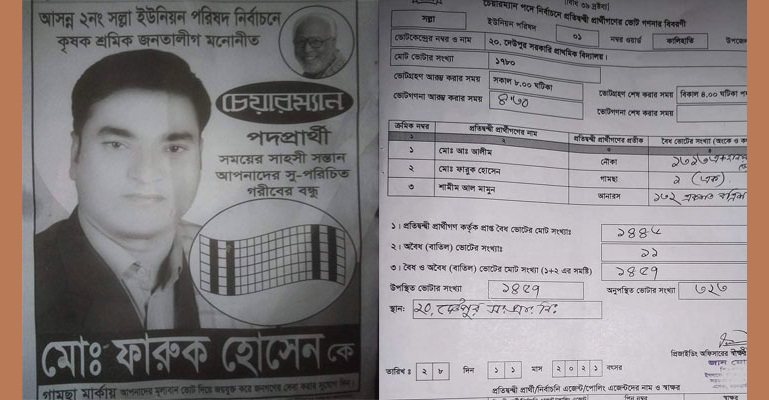 আসন্ন ২নং সল্লা ইউনিয়ন পরিষদ নির্বাচনে
কৃষক শ্রমিক জনতালীগ মনোনীত
চেয়ারম্যান
পদপ্রার্থী
সময়ের সাহসী সন্তান
আপনাদের সু-পরিচিত
গরীবের বন্ধু
মোঃ ফারুক হোসেন কে
গামছা মার্কায় আপনাদের মূল্যবান ভোট দিয়ে জয়যুক্ত করে জনগণের সেবা করার সুযোগ দিন।
চেয়ারম্যান পদে নির্বাচনে প্রতিদ্বন্দ্বী প্রার্থীগণের ভোট গণনার বিবরণী
সল্লা ইউনিয়ন পরিষদ ০১ নম্বর ওয়ার্ড কালিহাতি
ভোটকেন্দ্রের নম্বর ও নাম ২০. দেউপুর সরকারি প্রাথমিক বিদ্যালয়।
মোট ভোটার সংখ্যা ১৭৮০
ভোটগ্রহণ আরম্ভ করার সময় সকাল ৮.০০ ঘটিকা ভোটগ্রহণ শেষ করার সময় বিকাল ৪.০০ ঘটিকা
ভোটগণনা আরম্ভ করার সময় ভোটগণনা শেষ করার সময়
ক্রমিক নম্বর প্রতিদ্বন্দ্বী প্রার্থীগণের নাম প্রতিদ্বন্দ্বী প্রার্থীগণের প্রতীক বৈধ ভোটের সংখ্যা (অংকে ও
১ মোঃ আঃ আলীম নৌকা
২ মোঃ ফারুক হোসেন গামছা ১ (এক)
৩ শামীম আল মামুন আনারস
১। প্রতিদ্বন্দ্বী প্রার্থীগণ কর্তৃক প্রাপ্ত বৈধ ভোটের মোট সংখ্যাঃ
২। অবৈধ (বাতিল) ভোটের সংখ্যাঃ ১১
৩। বৈধ ও অবৈধ (বাতিল) ভোটের মোট সংখ্যা (১+২ এর সমষ্টি)
উপস্থিত ভোটার সংখ্যা অনুপস্থিত ভোটার সংখ্যা
স্থান: ২০, দেউপুর
প্রিজাইডিং অফিসারের
তারিখ ঃ ২৮ দিন ১১ মাস ২০২১ বৎসর
প্রতিদ্বন্দ্বী প্রার্থী/নির্বাচনি এজেন্ট/পোলিং এজেন্টদের নাম ও স্বাক্ষর